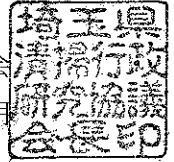 埼玉県
清掃行政
研究協議
会長印